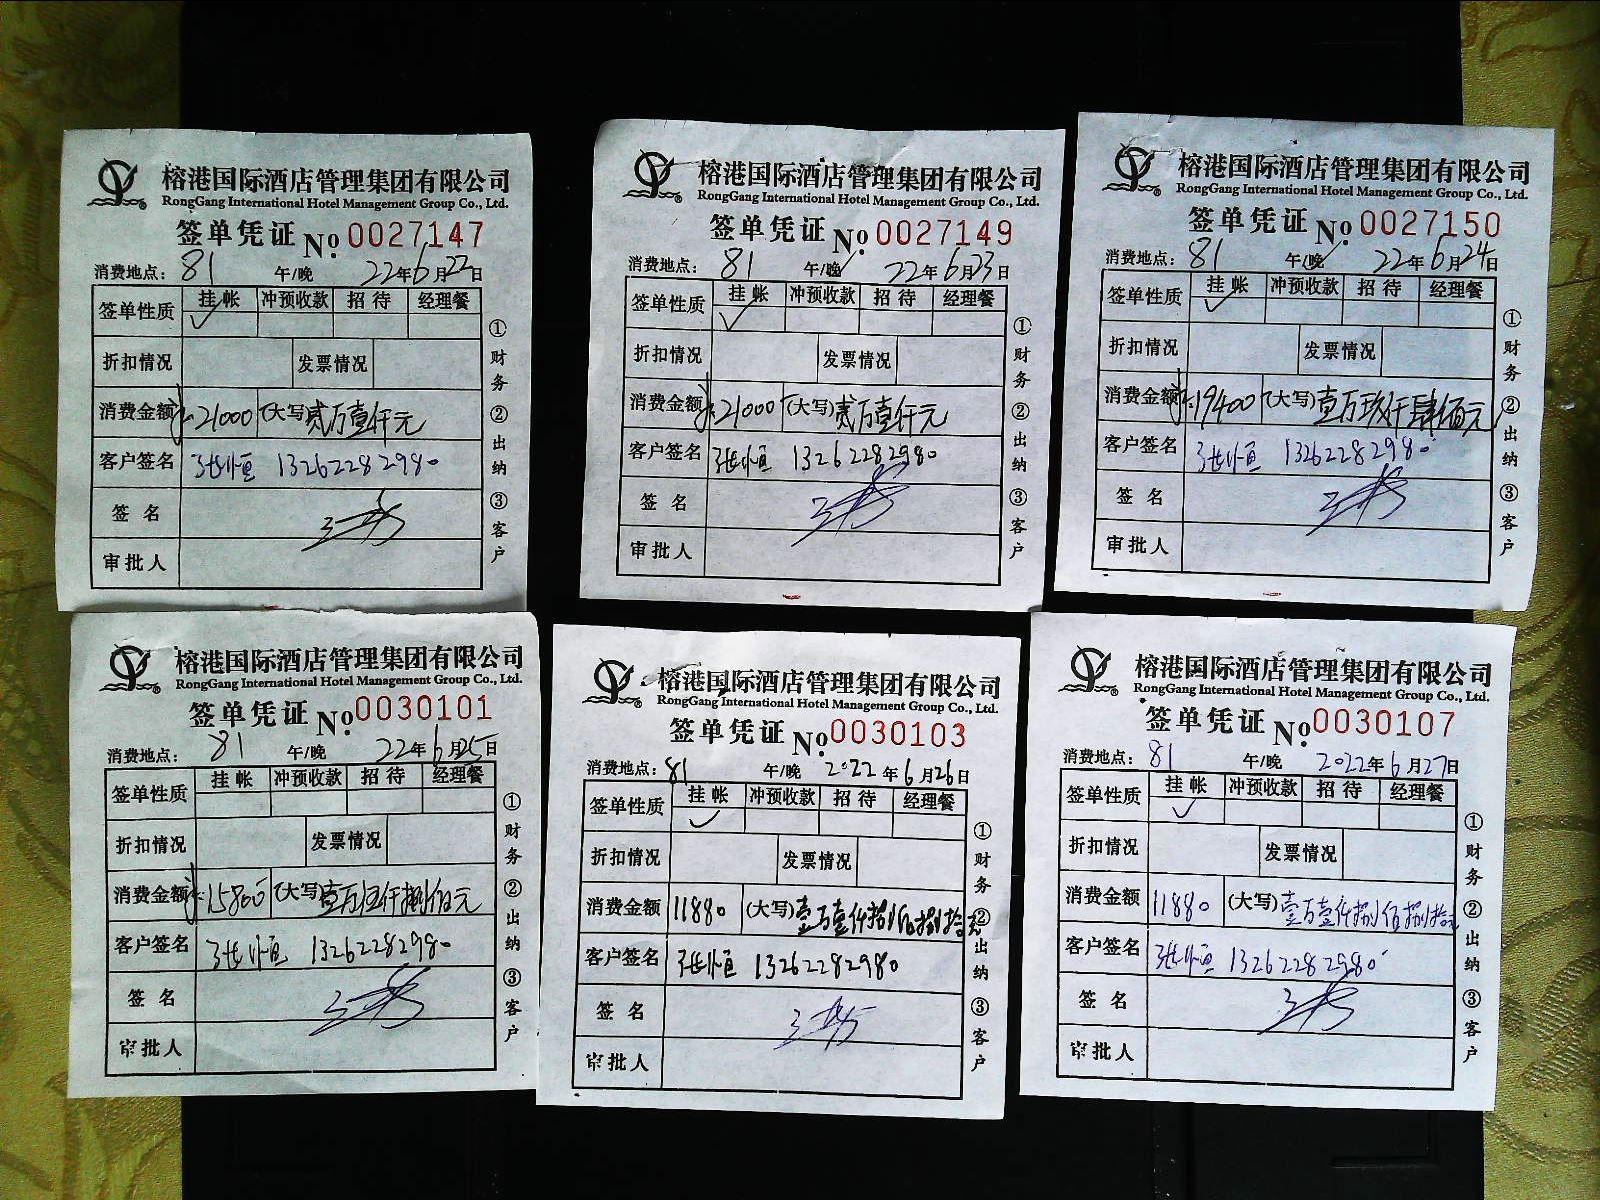 榕港国际酒店管理集团有限公司
RongGang International Hotel Management Group Co., Ltd.
签单凭证 No. 0027147
消费地点: 81 午/晚 22年6月22日
签单性质 挂帐 冲预收款 招待 经理餐
✓
折扣情况 发票情况
消费金额 ¥:21000 (大写)贰万壹仟元
客户签名 张恒 13262282980
签名
审批人
①财务 ②出纳 ③客户
榕港国际酒店管理集团有限公司
RongGang International Hotel Management Group Co., Ltd.
签单凭证 No. 0027149
消费地点: 81 午/晚 22年6月23日
签单性质 挂帐 冲预收款 招待 经理餐
✓
折扣情况 发票情况
消费金额 ¥:21000 (大写)贰万壹仟元
客户签名 张恒 13262282980
签名
审批人
①财务 ②出纳 ③客户
榕港国际酒店管理集团有限公司
RongGang International Hotel Management Group Co., Ltd.
签单凭证 No. 0027150
消费地点: 81 午/晚 22年6月24日
签单性质 挂帐 冲预收款 招待 经理餐
✓
折扣情况 发票情况
消费金额 ¥:19400 (大写)壹万玖仟肆佰元
客户签名 张恒 13262282980
签名
审批人
①财务 ②出纳 ③客户
榕港国际酒店管理集团有限公司
RongGang International Hotel Management Group Co., Ltd.
签单凭证 No. 0030101
消费地点: 81 午/晚 22年6月25日
签单性质 挂帐 冲预收款 招待 经理餐
折扣情况 发票情况
消费金额 ¥:15800 (大写)壹万伍仟捌佰元
客户签名 张恒 13262282980
签名
审批人
①财务 ②出纳 ③客户
榕港国际酒店管理集团有限公司
RongGang International Hotel Management Group Co., Ltd.
签单凭证 No. 0030103
消费地点: 81 午/晚 2022年6月26日
签单性质 挂帐 冲预收款 招待 经理餐
✓
折扣情况 发票情况
消费金额 11880 (大写)壹万壹仟捌佰捌拾元
客户签名 张恒 13262282980
签名
审批人
①财务 ②出纳 ③客户
榕港国际酒店管理集团有限公司
RongGang International Hotel Management Group Co., Ltd.
签单凭证 No. 0030107
消费地点: 81 午/晚 2022年6月27日
签单性质 挂帐 冲预收款 招待 经理餐
✓
折扣情况 发票情况
消费金额 11880 (大写)壹万壹仟捌佰捌拾元
客户签名 张恒 13262282980
签名
审批人
①财务 ②出纳 ③客户